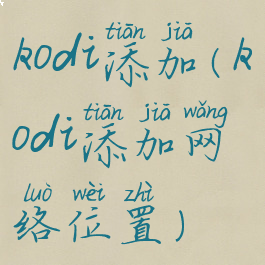 tiān jiā
kodi添加(k
tiān jiā wǎng
odi添加网
luò wèi zhì
络位置)